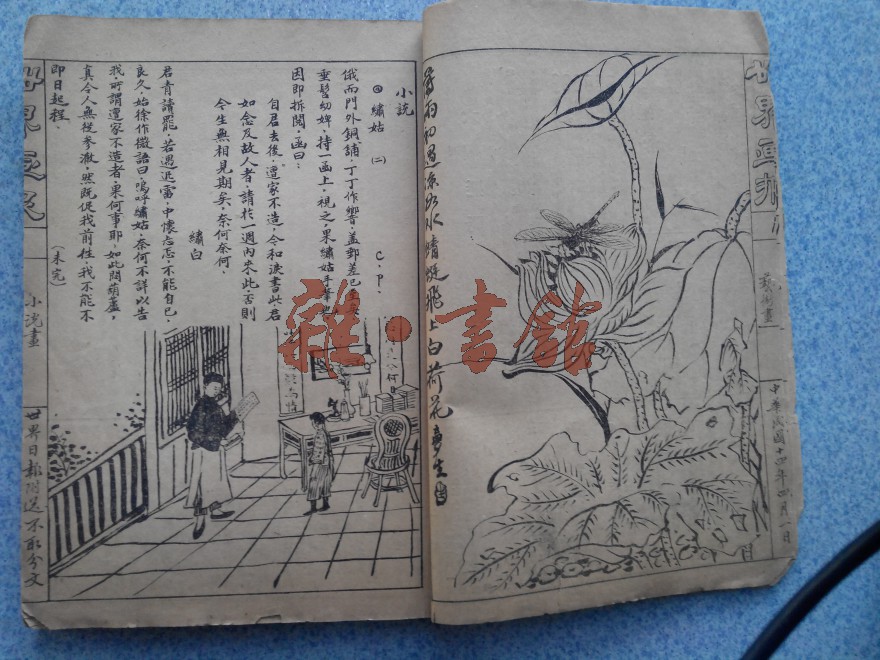 世界畫報
藝術畫
中華民國十四年四月一日
雨初過
水蜻蜓飛上白荷花 夢生
小說
◎繡姑 (二) C.P.
俄而門外銅鋪丁丁作響蓋郵差已至
垂髫幼婢持一函上視之果繡姑手筆也
因即拆閱函曰
自君去後遭家不造今和淚書此君
如念及故人者請於一週內來此否則
今生無相見期矣奈何奈何
繡白
君青讀罷若遇迅雷中懷忐忑不能自已
良久始徐作微語曰嗚呼繡姑奈何不詳以告
我所謂遭家不造者果何事耶如此悶葫蘆
真令人無從參澈然既促我前往我不能不
即日起程
(未完)
世界畫報
小說畫
世界日報附送不取分文
雜·書館